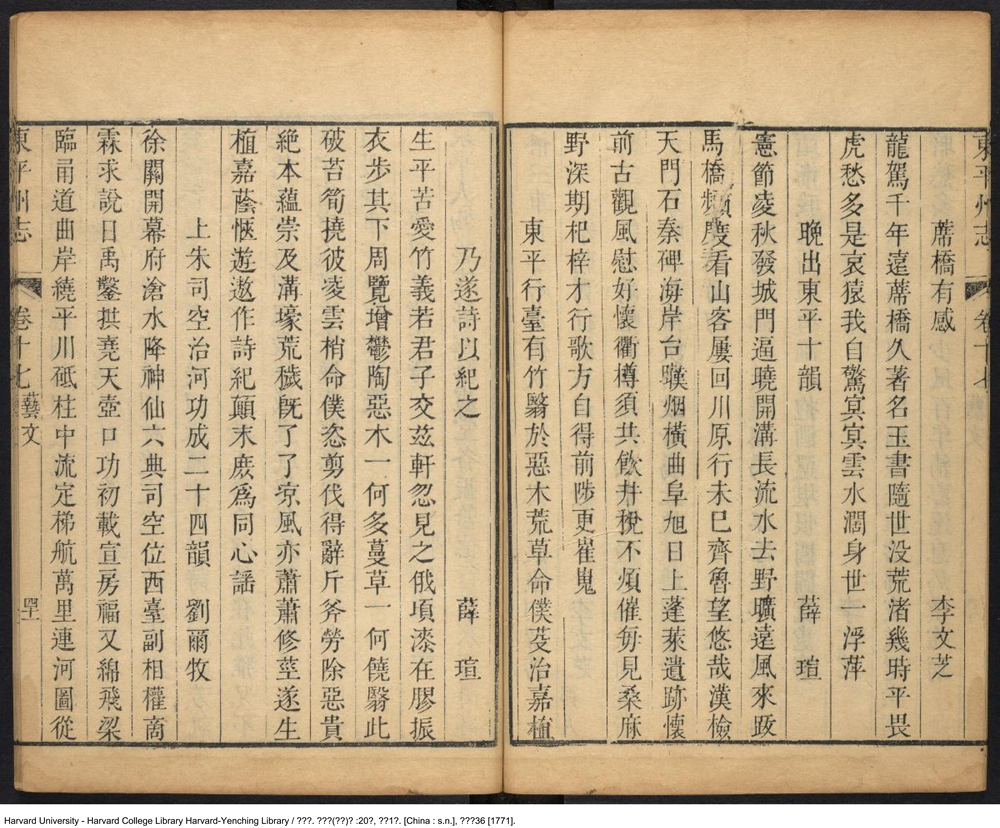 東平州志 卷十七
蓆橋有感 李文芝
龍駕千年遠蓆橋久著名玉書隨世没荒渚幾時平畏
虎愁多是哀猿我自驚冥冥雲水濶身世一浮萍
晚出東平十韻 薛瑄
憲節凌秋發城門逼曉開溝長流水去野曠遠風來跂
馬橋頻度看山客屢回川原行未巳齊魯望悠哉漢檢
天門石秦碑海岸台嘆烟橫曲阜旭日上蓬萊遺跡懷
前古觀風慰好懷衢樽須共飲井梲不煩催毎見桑麻
野深期杞梓才行歌方自得前陟更崔嵬
東平行臺有竹翳於惡木荒草命僕芟治嘉植
乃遂詩以紀之 薛瑄
生平苦愛竹義若君子交玆軒忽見之俄頃漆在膠振
衣步其下周覽增鬱陶惡木一何多蔓草一何饒翳此
破苔筍撓彼凌雲梢命僕恣剪伐得辭斤斧勞除惡貴
絶本蘊崇及溝壕荒穢旣了了凉風亦蕭蕭修莖遂生
植嘉蔭愜遊遨作詩紀顛末庶爲同心謠
上朱司空治河功成二十四韻 劉爾牧
徐關開幕府滄水降神仙六典司空位西臺副相權商
霖求說日禹鑿拱堯天壺口功初載宣房福又綿飛梁
臨甬道曲岸繞平川砥柱中流定梯航萬里連河圖從
東平州志 卷十七 藝文
Harvard University - Harvard College Library Harvard-Yenching Library / ???. ???(??)? :20?, ??1?. [China : s.n.], ???36 [1771].